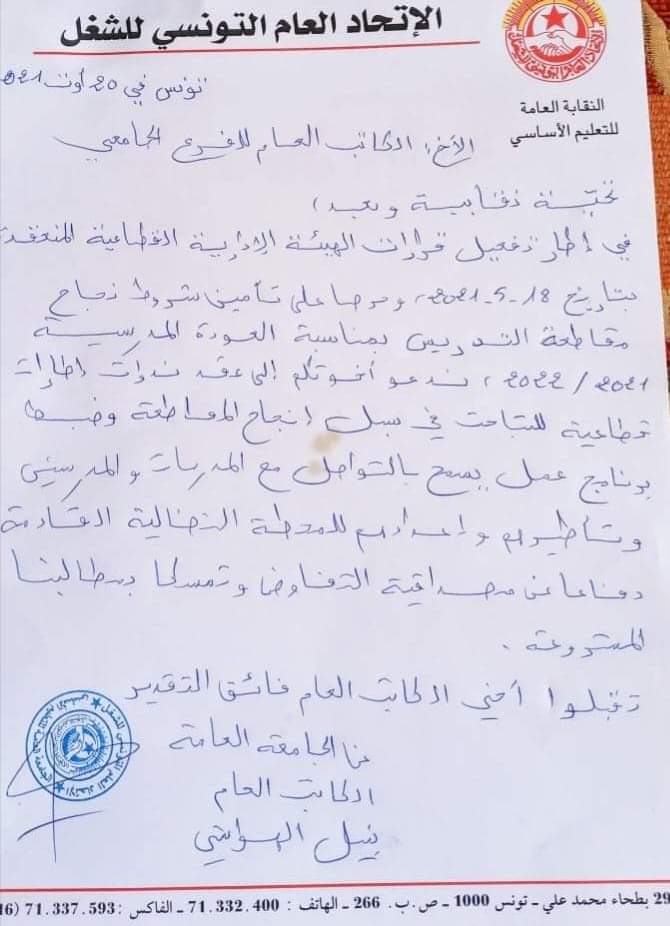 الإتحاد العام التونسي للشغل
النقابة العامة
للتعليم الأساسي
تونس في 20 أوت 2021
الأخ، الكاتب العام للفرع الجامعي
تحيّة نقابية وبعد،
في إطار تفعيل قرارات الهيئة الإدارية القطاعية المنعقدة
بتاريخ 18-5-2021، وحرصا على تأمين شروط نجاح
مقاطعة التدريس بمناسبة العودة المدرسية
2021/2022، ندعو أخوتكم إلى عقد ندوات إطارات
قطاعية للتباحث في سبل إنجاح المقاطعة وضبط
برنامج عمل يسمح بالتواصل مع المدرسات والمدرسين
وتأطيرهم وإعدادهم للمحطة النضالية القادمة
دفاعا عن مصداقية التفاوض وتمسكا بمطالبنا
المشروعة.
تقبلوا أخي الكاتب العام فائق التقدير
عن الجامعة العامة
الكاتب العام
نبيل الهواشي
29 بطحاء محمد علي - تونس 1000 - ص.ب. 266 - الهاتف : 71.332.400 - الفاكس : 71.337.593 (16